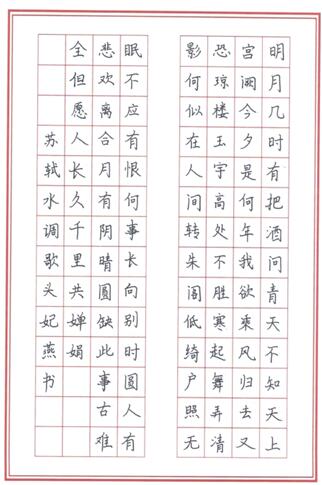 明月几时有把酒问青天不知天上
宫阙今夕是何年我欲乘风归去又
恐琼楼玉宇高处不胜寒起舞弄清
影何似在人间转朱阁低绮户照无
眠不应有恨何事长向别时圆人有
悲欢离合月有阴晴圆缺此事古难
全但愿人长久千里共婵娟
苏轼水调歌头妃燕书